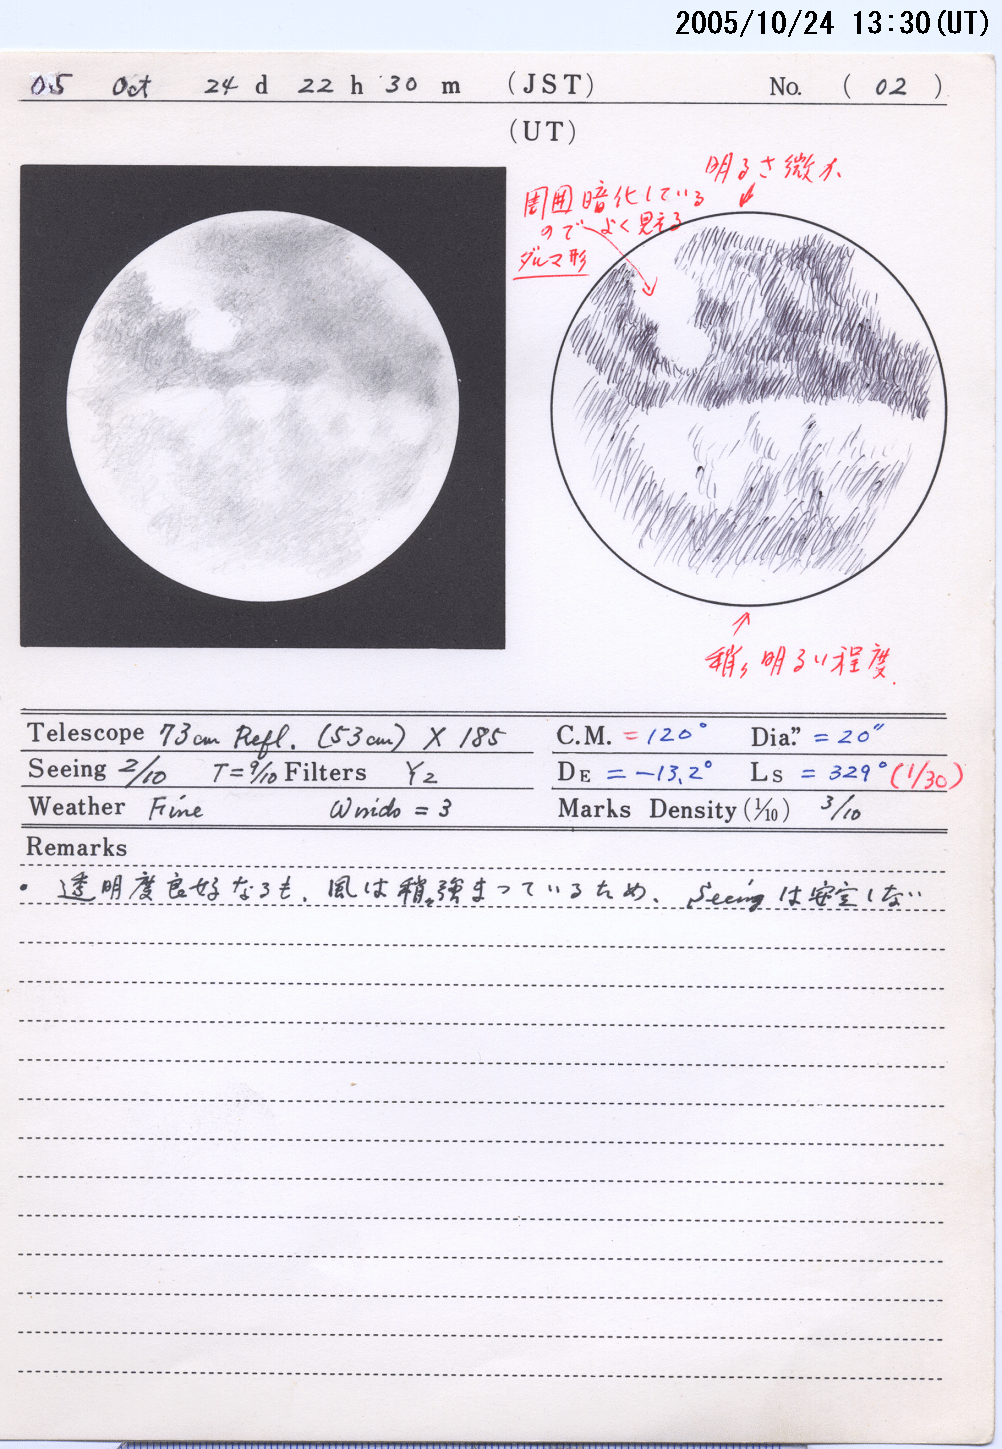 2005/10/24 13:30(UT)
05 Oct 24 d 22 h 30 m (JST) No. ( 02 )
(UT)
明るさ微小
周囲暗化している
のでよく見える
ダルマ形
稍々明るい程度.
Telescope 73cm Refl. (53cm) X 185
C.M. = 120° Dia." = 20"
Seeing 2/10 T=9/10 Filters Y2
DE = -13.2° Ls = 329° (1/30)
Weather Fine Winds = 3
Marks Density (1/10) 3/10
Remarks
・透明度良好なるも、風は稍々強まっているため、Seeingは安定しない